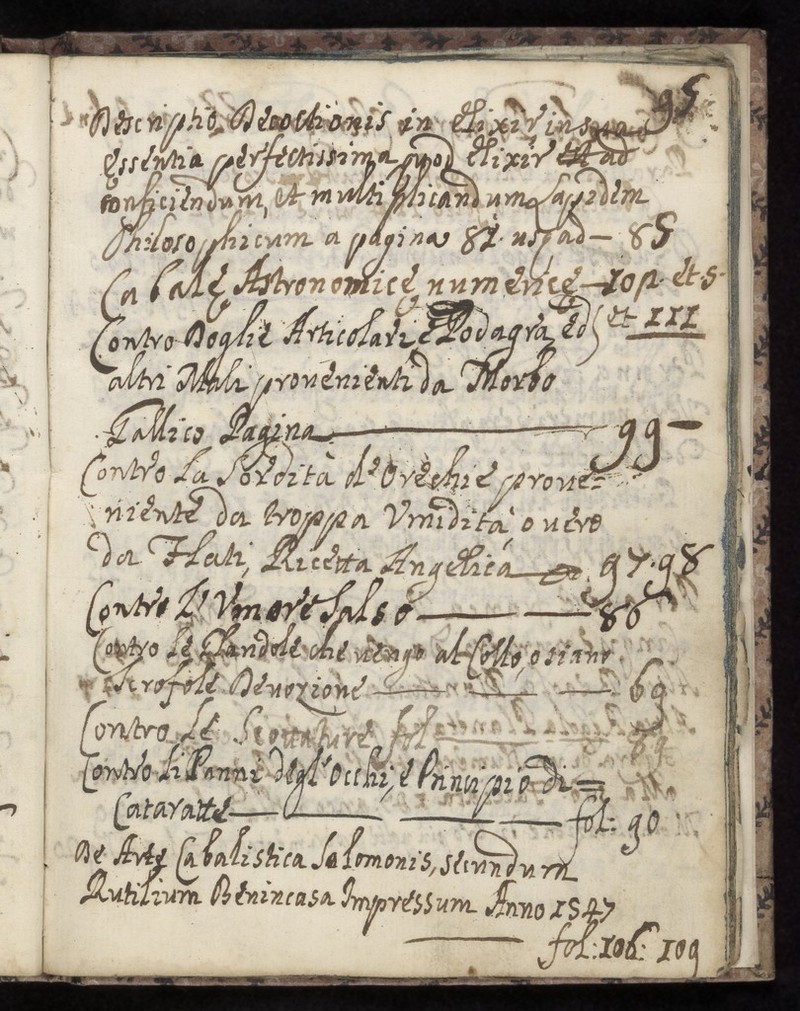 95
Descriptio Decoctionis in Elixir in sua
Essentia perfectissima, quod Elixir est ad
conficiendum, et multiplicandum Lapidem
Philosophicum a pagina 82. usq ad — 85
Cabalę Astronomicę numericę — 10p. et s.
Contro Doglie Articolari e Podagra, ed et 111
altri Mali provenienti da Morbo
Gallico Pagina — 99 —
Contro La Sordità d'Orechie prove=
niente da troppa Vmidità, o vero
da Flati, Ricetta Angelica — 97. 98
Contro L'Vmore Salso — — 86
Contro Le Glandole che vengo al Collo, o siano
Scrofole Devozione — — — 69
Contro Le Scottature fol — 69
Contro li Panni degl'Occhi, e Principio di =
Cataratte — — — — fol: 90
De Arte Cabalistica Salomonis, secundum
Rutilium Benincasa Impressum Anno 1547
— fol: 106: 109